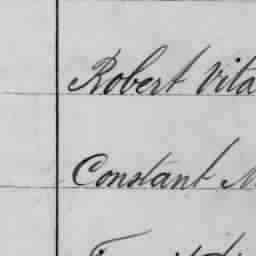 Robert Vita
Constant